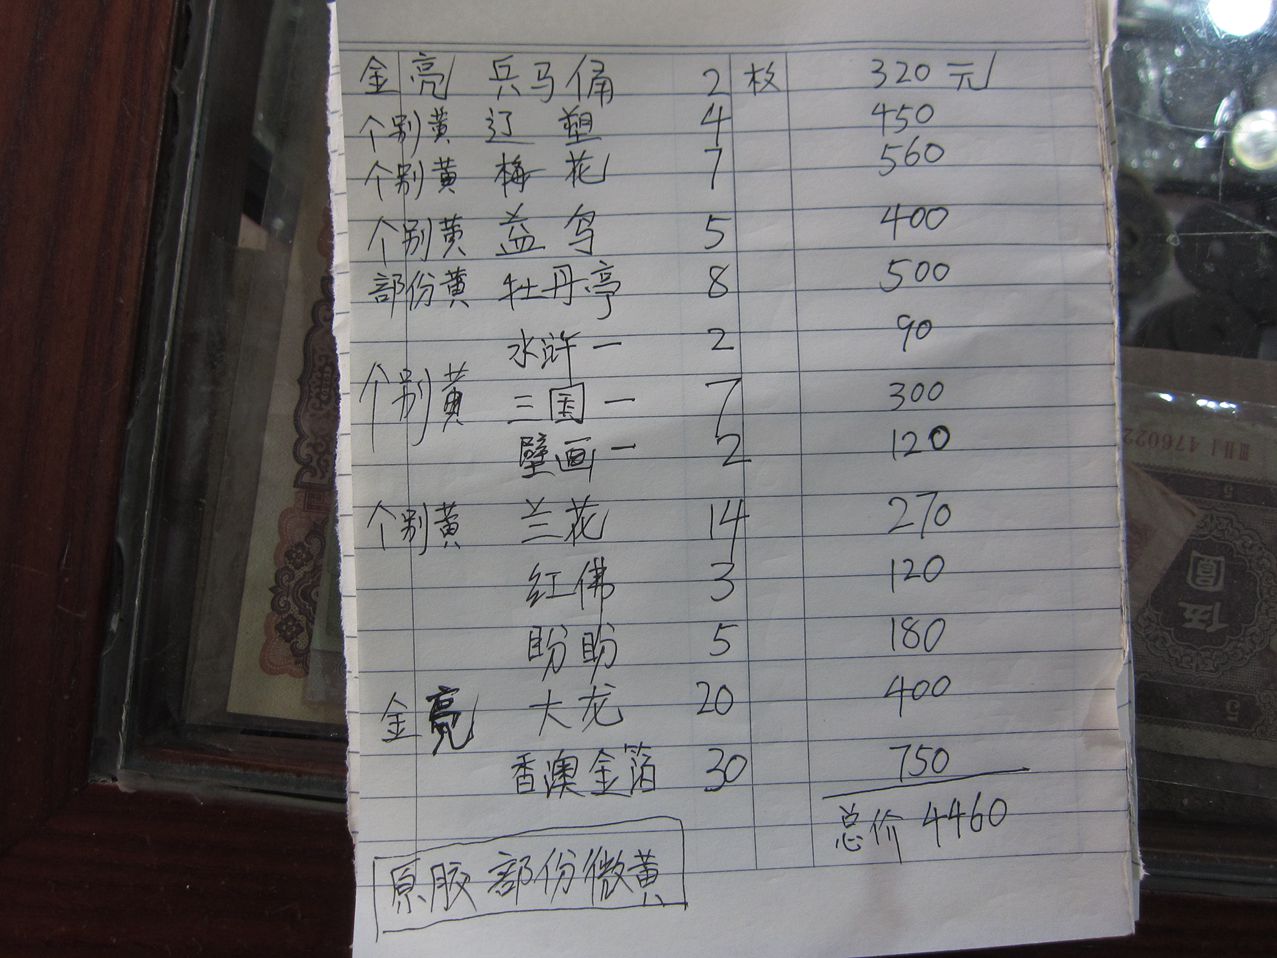 金亮 兵马俑 2 枚 320元
个别黄 辽塑 4 450
个别黄 梅花 7 560
个别黄 益鸟 5 400
部份黄 牡丹亭 8 500
水浒一 2 90
个别黄 三国一 7 300
壁画一 2 120
个别黄 兰花 14 270
红佛 3 120
盼盼 5 180
金亮 大龙 20 400
香澳金箔 30 750
总价 4460
原胶 部份微黄
476022
5
伍圓
5